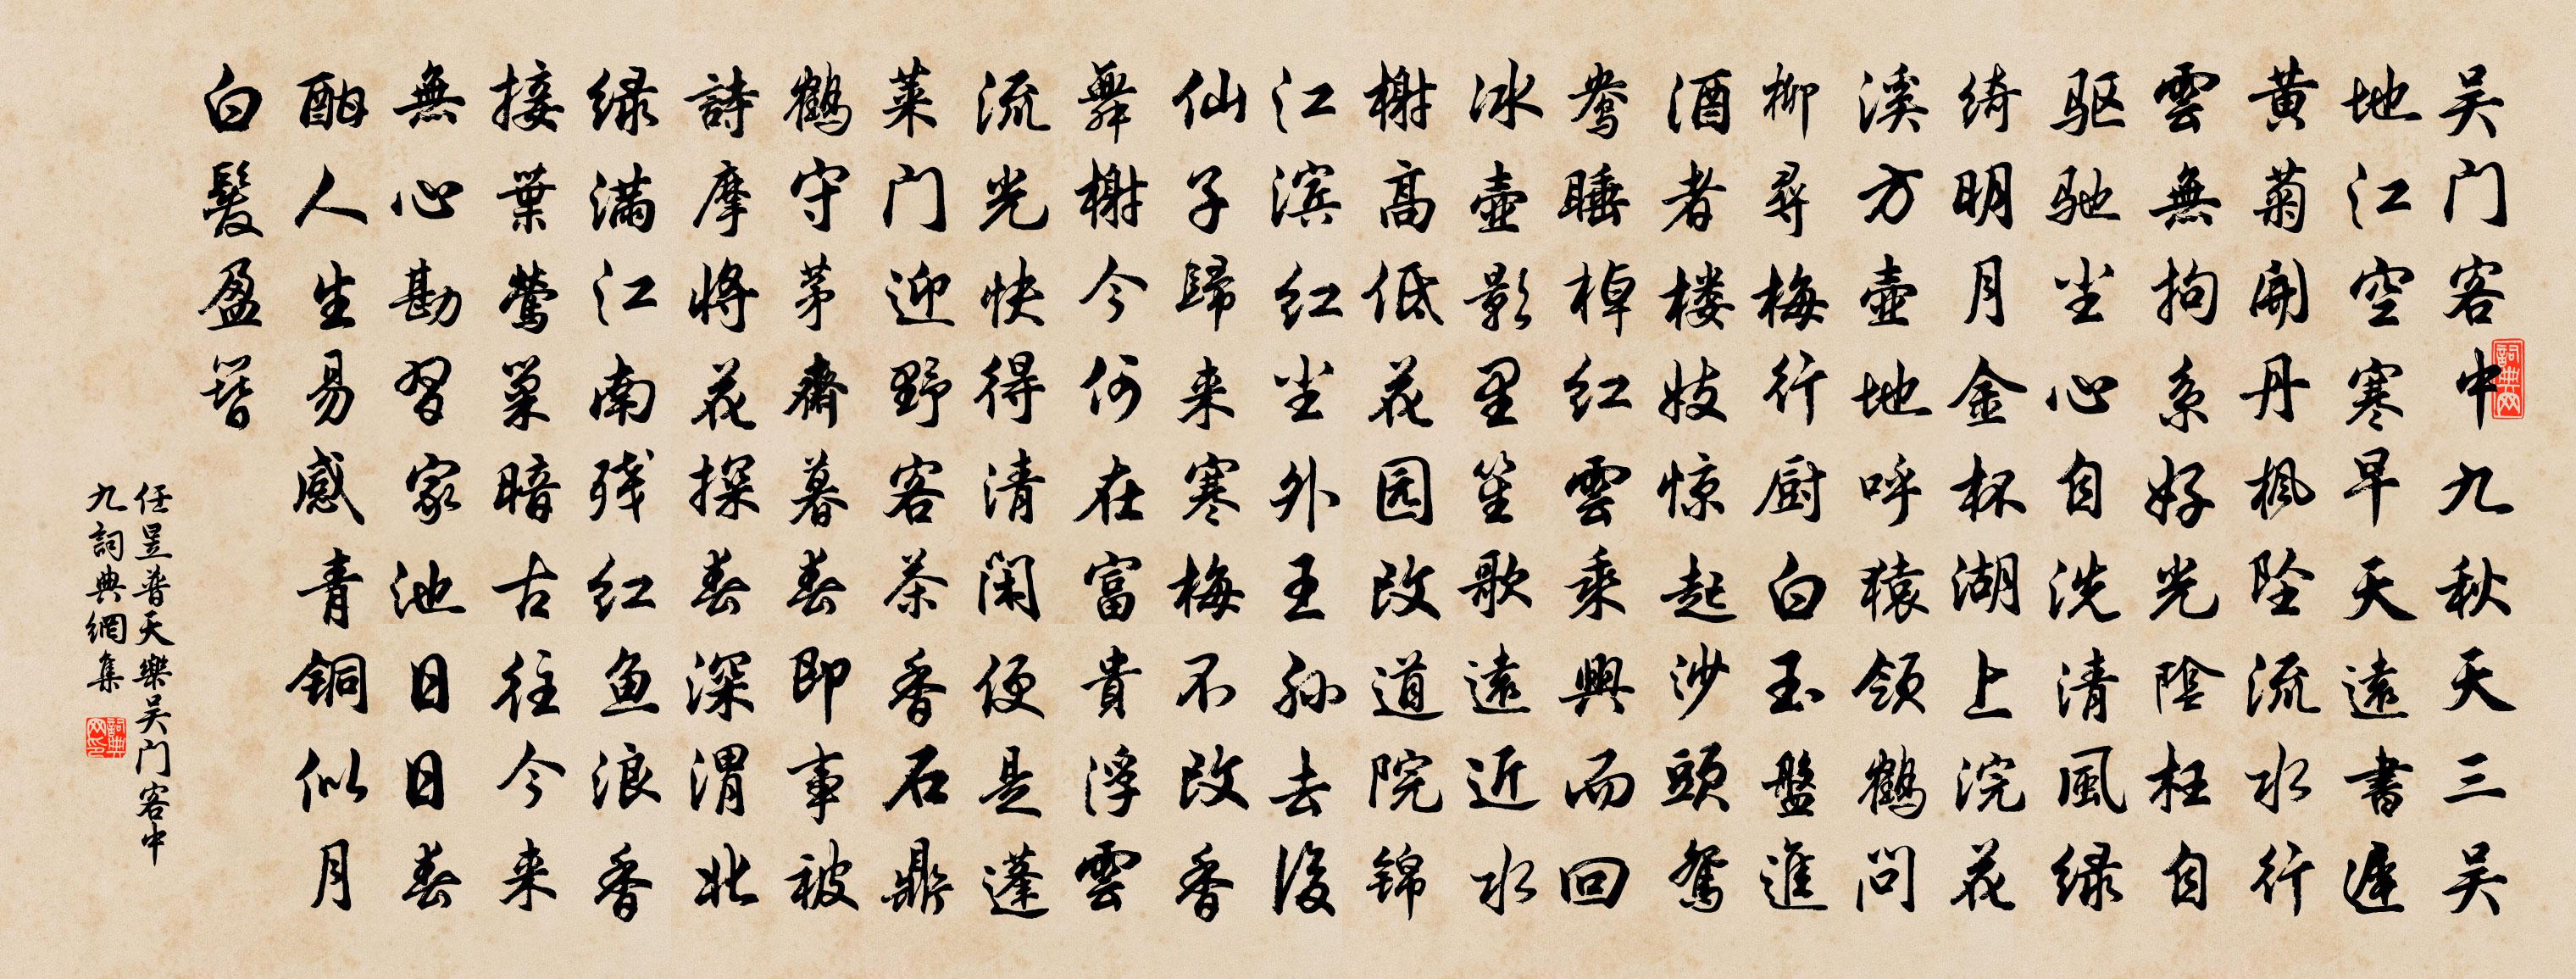 吴门客中九秋天三吴
地江空寒早天远書遲
黄菊開丹楓坠流水行
雲無拘系好光陰枉自
驱驰尘心自洗清風绿
绮明月金杯湖上浣花
溪方壶地呼猿领鶴问
柳尋梅行厨白玉盤進
酒者楼妓惊起沙頭鸳
鸯睡棹红雲乘興而回
冰壶影里笙歌遠近水
榭高低花园改道院锦
江滨红尘外王孙去後
仙子歸来寒梅不改香
舞榭今何在富貴浮雲
流光快得清闲便是蓬
莱门迎野客茶香石鼎
鶴守茅齋暮春即事被
詩摩將花探春深渭北
绿满江南残红鱼浪香
接葉鶯巢暗古往今来
無心勘習家池日日春
酣人生易感青铜似月
白髮盈簪
任昱普天樂吴门客中
九詞典網集
詞典网
詞典网印